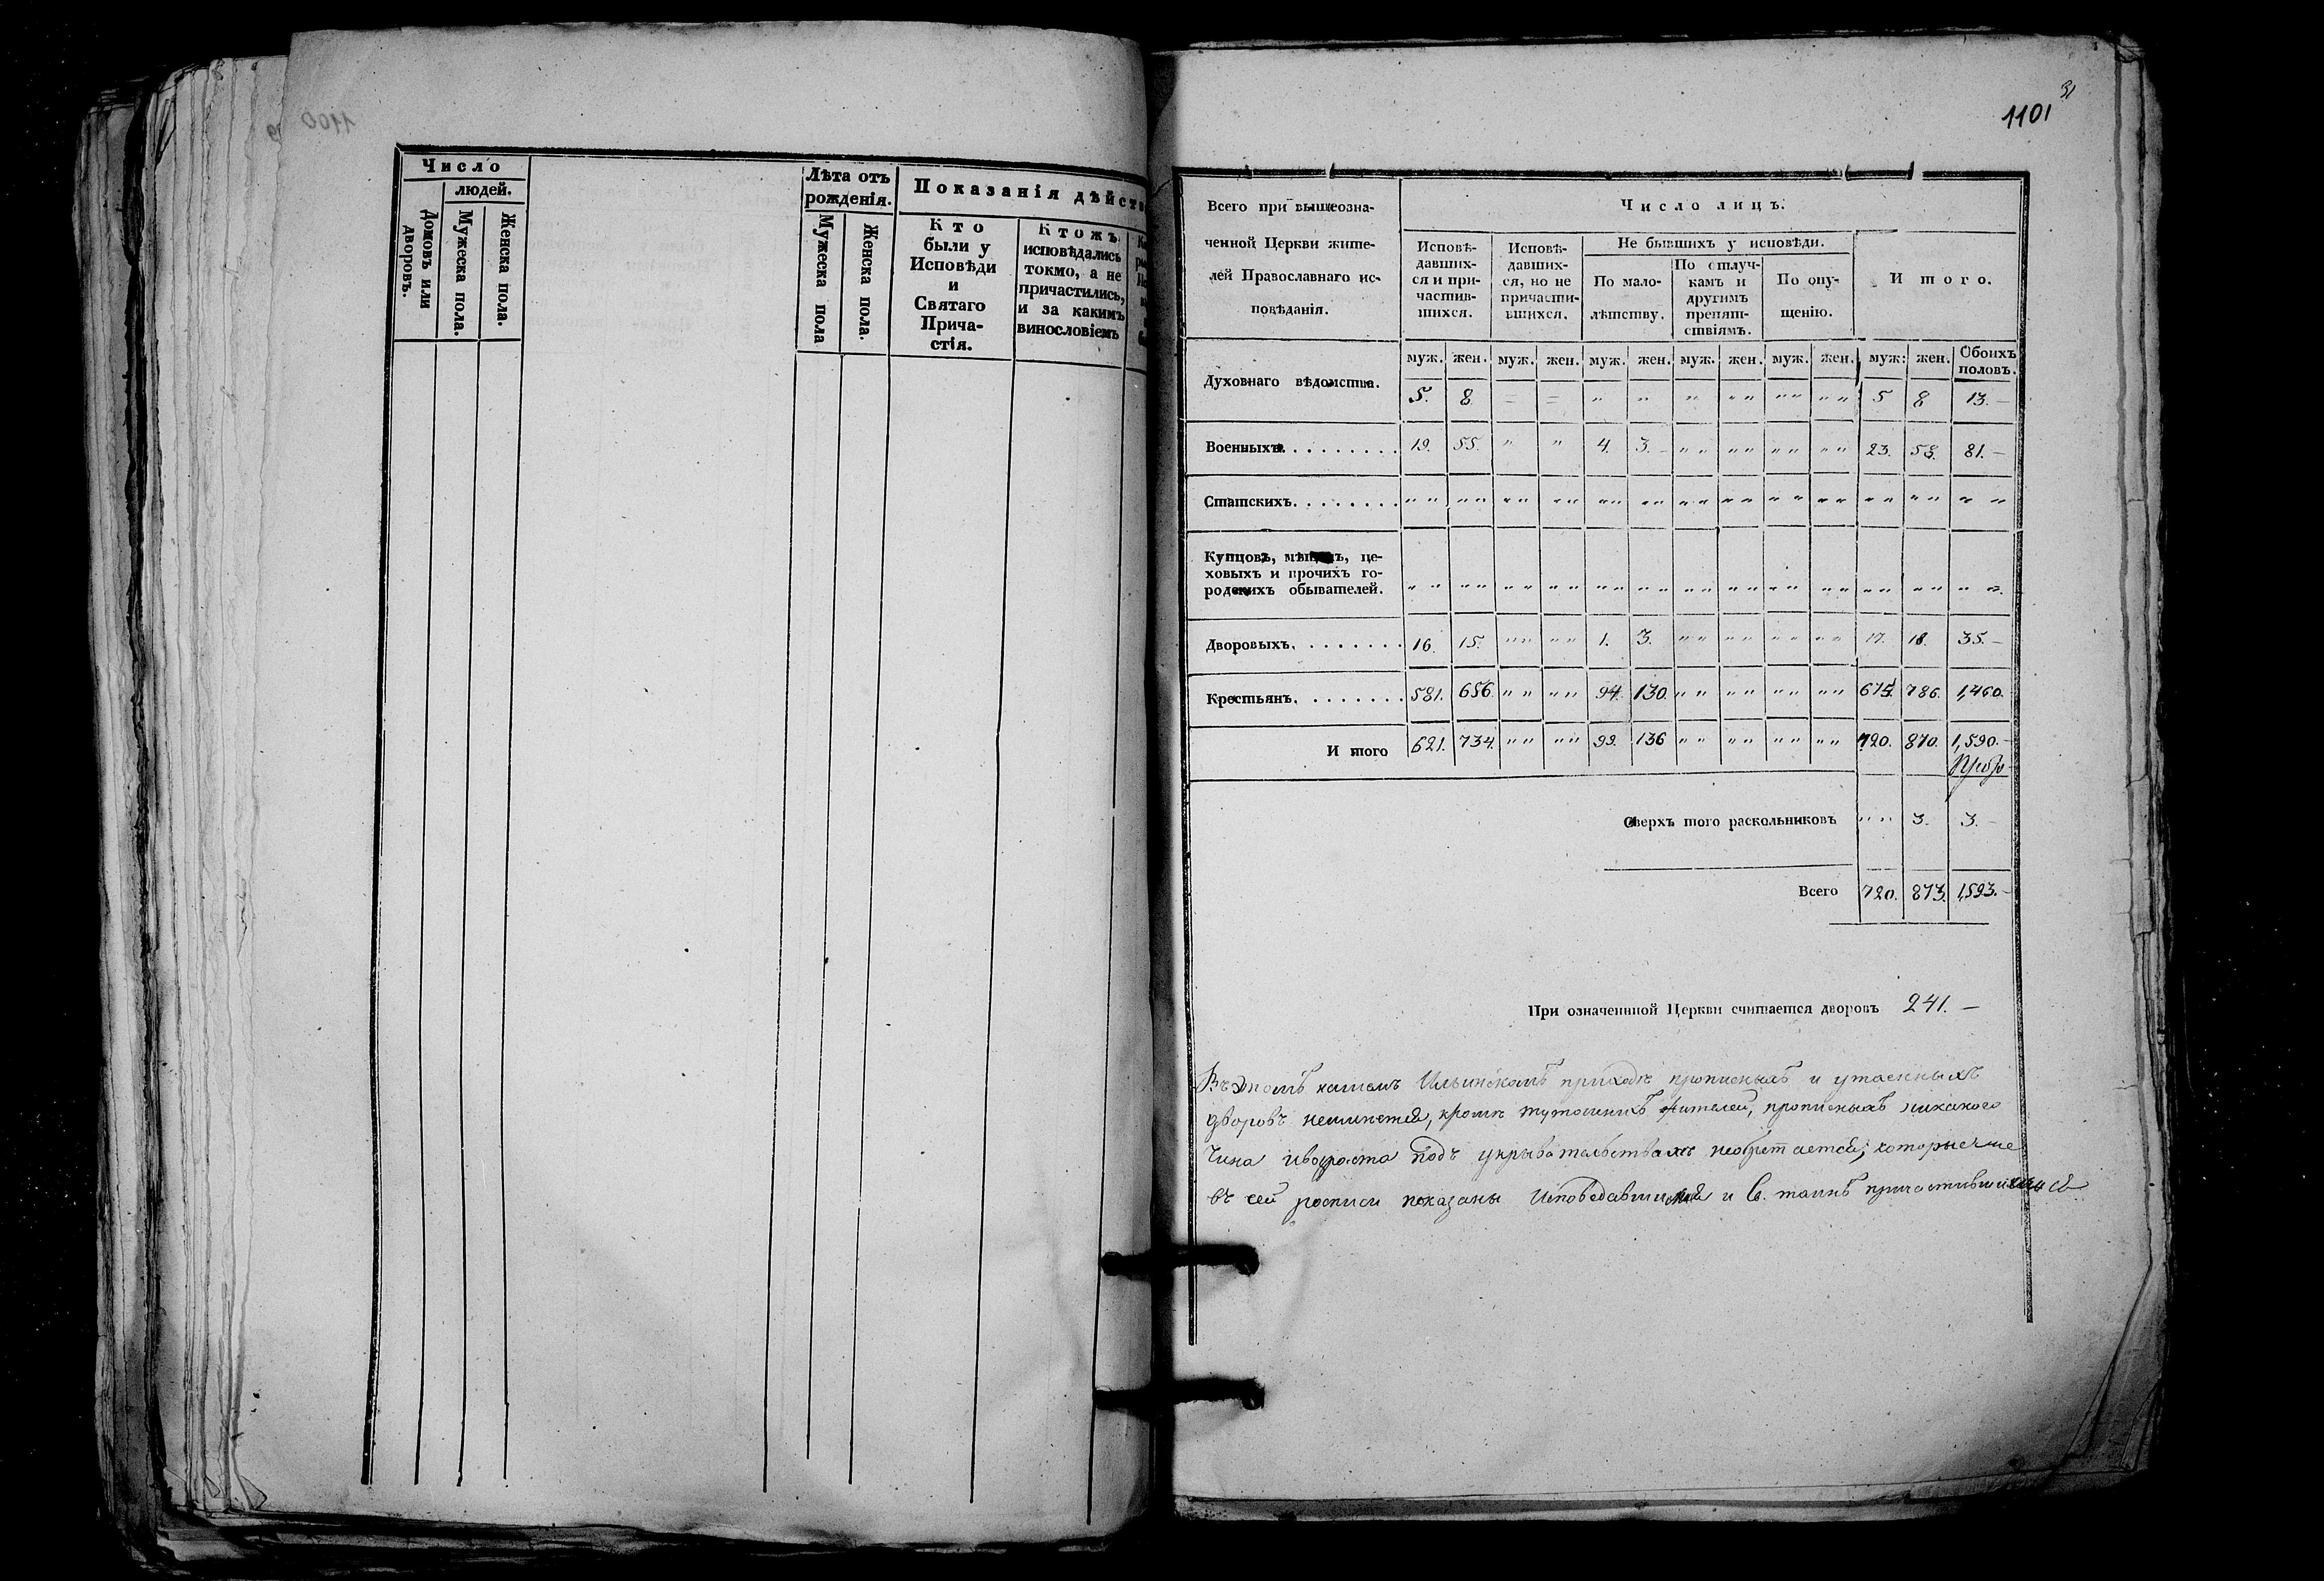 1100
Число
людей.
Домовъ или дворовъ.
Мужеска пола.
Женска пола.
Лѣта отъ
рожденія.
Мужеска пола
Женска пола.
Показанія дѣйст
Кто
были у
Исповѣди
и
Святаго
Прича-
стія.
Ктожъ
исповѣдались
токмо, а не
причастились,
и за какимъ
винословіемъ
31
1101
Всего при вышеозна-
ченной Церкви жите-
лей Православнаго ис-
повѣданія.
Число лицъ.
Исповѣ-
давших-
ся и при-
частив-
шихся.
Исповѣ-
давших-
ся, но не
причасти-
вшихся.
Не бывшихъ у исповѣди.
По мало-
лѣтству.
По отлуч-
камъ и
другимъ
препят-
ствіямъ.
По опу-
щенію.
Итого.
муж. жен. муж. жен. муж. жен. муж. жен. муж. жен. муж. жен. Обоихъ половъ.
Духовнаго вѣдомства. 5. 8. = = " " " " " " " " " 5 8 13.—
Военныхъ. . . . . . . . . 19. 55. " " 4. 3.– " " " " " " " " 23. 58. 81.—
Статскихъ. . . . . . . . " " " " " " " " " " " " " " " " " " " " " " " " " "
Купцовъ, мѣщ ъ, це-
ховыхъ и прочихъ го-
родскихъ обывателей. " " " " " " " " " " " " " " " " " " " " " " " " " ".
Дворовыхъ. . . . . . . . 16. 15. " " " " 1. 3. " " " " " " " " 17. 18. 35.—
Крестьянъ. . . . . . . . 581. 656. " " " " 94. 130. " " " " " " " " 675. 786. 1,460.
Итого 621. 734. " " " " 99. 136 " " " " " " " " 720. 870. 1,590.—
Сверхъ того раскольниковъ " " 3. 3.—
Всего 720. 873. 1,593.—
При означенниой Церкви считается дворовъ 241.—
Въ этомъ нашемъ Ильинскомъ приходѣ прописныхъ и утаенныхъ
дворовъ неимѣется, кромѣ тутошнихъ жителей, прописныхъ никакого
чина ивозраста подъ укрывательствахъ необретается; которые
въ сей росписи показаны исповедавшимися и Св. таинъ причастившимися